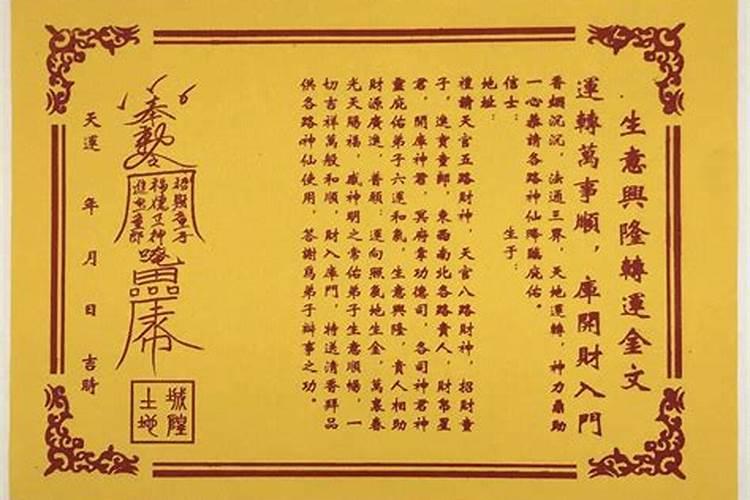 生意興隆轉運金文
運轉萬事順，庫開財入門
香煙沉沉，法通三界，天地運轉，神力鼎助
一心恭請各路神仙降臨庇佑。
信士： 生于：
地址：
禮請天官五路財神，天官八路財神，招財童
子，進寶童郎，東西南北各路貴人，財帛星
君，開庫神君，冥府掌功德司，各司神君神
靈庇佑弟子六運和氣，生意興隆，貴人相助
財源廣進，普願：運向照氣地生金，萬裏春
光天賜福，感神明之常佑弟子生意順暢，一
切吉祥萬般和順，財入庫門，特送清香拜品
供各路神仙使用，答謝爲弟子辦事之功。
奉勅令
招財童子
福德正神
進寶童郎
城隍
土地
天運 年 月 日 吉時